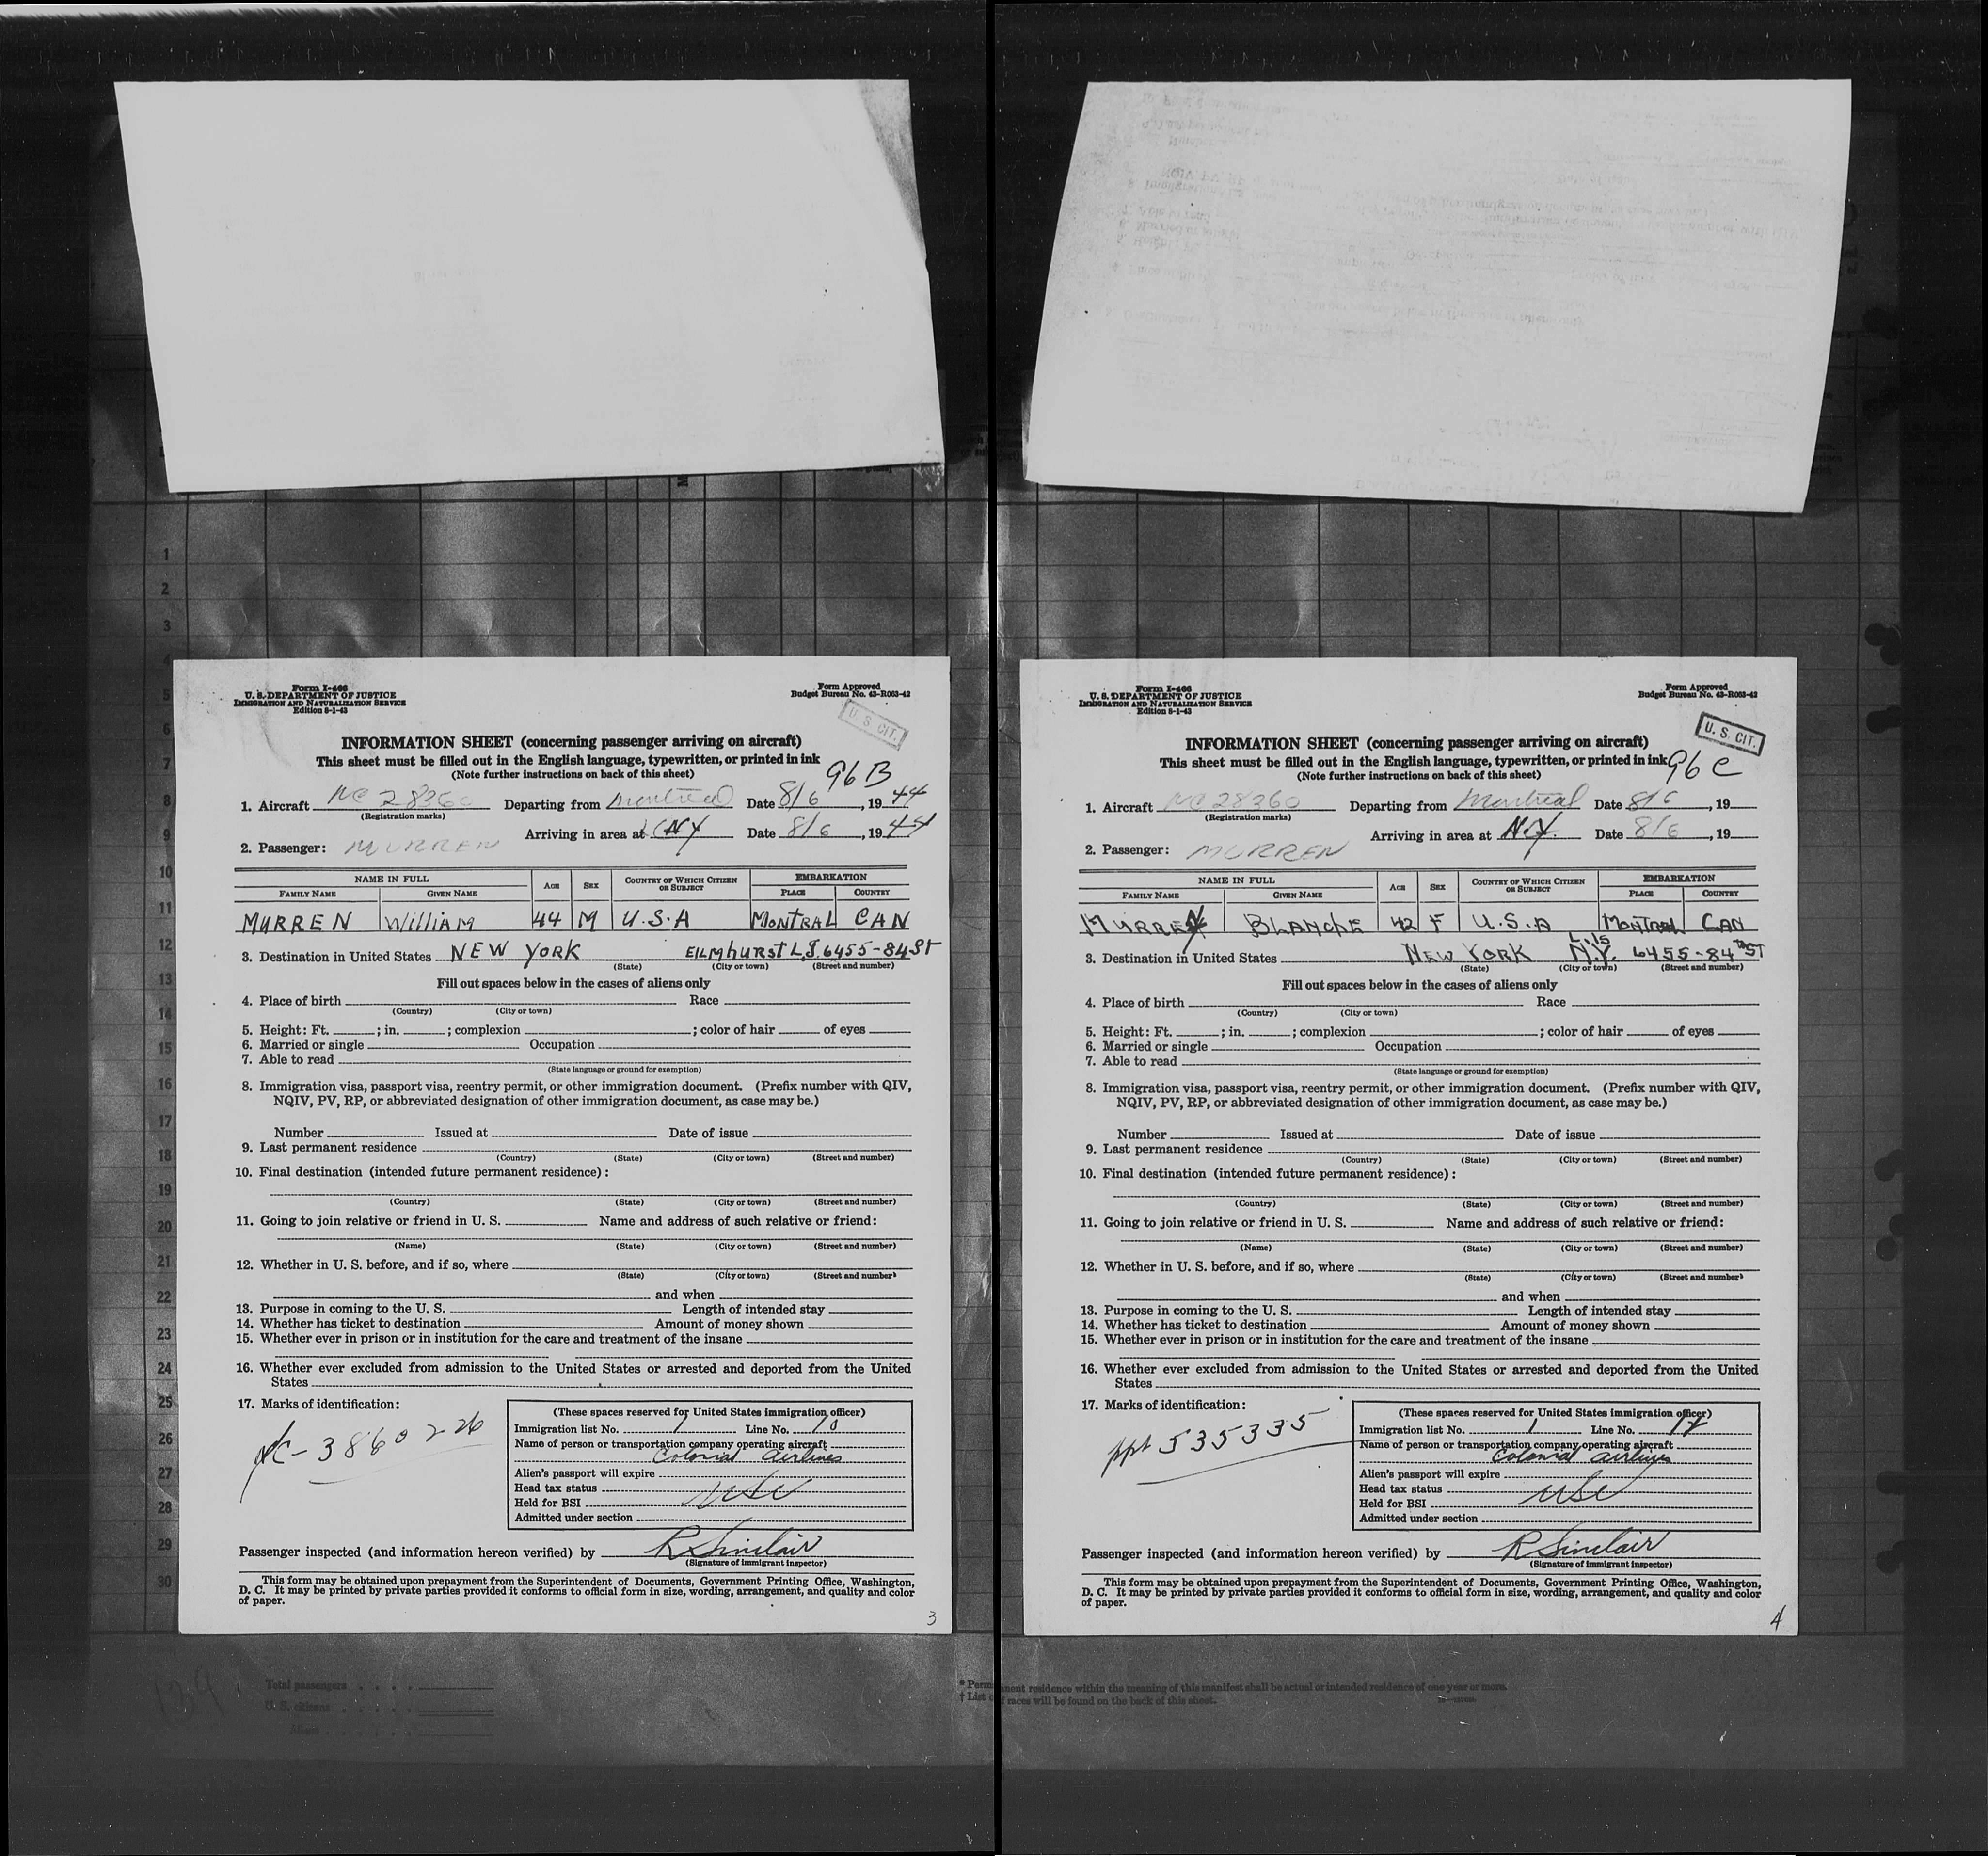 Form I-466
U. S. DEPARTMENT OF JUSTICE
IMMIGRATION AND NATURALIZATION SERVICE
Edition 8-1-43
Form Approved
Budget Bureau No. 43-R063-42
U. S. CIT.
INFORMATION SHEET (concerning passenger arriving on aircraft)
This sheet must be filled out in the English language, typewritten, or printed in ink
(Note further instructions on back of this sheet)
96 B
1. Aircraft NC 28360 Departing from Montreal Date 8/6, 1944
(Registration marks)
Arriving in area at NY Date 8/6, 1944
2. Passenger: MURREN
NAME IN FULL AGE SEX COUNTRY OF WHICH CITIZEN OR SUBJECT EMBARKATION
FAMILY NAME GIVEN NAME PLACE COUNTRY
MURREN WilliAM 44 M U.S.A MONTRAL CAN
3. Destination in United States NEW YORK EILMhURST L.I. 6455-84 St
(State) (City or town) (Street and number)
Fill out spaces below in the cases of aliens only
4. Place of birth Race
(Country) (City or town)
5. Height: Ft. ; in. ; complexion ; color of hair of eyes
6. Married or single Occupation
7. Able to read
(State language or ground for exemption)
8. Immigration visa, passport visa, reentry permit, or other immigration document. (Prefix number with QIV,
NQIV, PV, RP, or abbreviated designation of other immigration document, as case may be.)
Number Issued at Date of issue
9. Last permanent residence
(Country) (State) (City or town) (Street and number)
10. Final destination (intended future permanent residence):
(Country) (State) (City or town) (Street and number)
11. Going to join relative or friend in U. S. Name and address of such relative or friend:
(Name) (State) (City or town) (Street and number)
12. Whether in U. S. before, and if so, where
(State) (City or town) (Street and number)
and when
13. Purpose in coming to the U. S. Length of intended stay
14. Whether has ticket to destination Amount of money shown
15. Whether ever in prison or in institution for the care and treatment of the insane
16. Whether ever excluded from admission to the United States or arrested and deported from the United
States
17. Marks of identification:
C-3860226
(These spaces reserved for United States immigration officer)
Immigration list No. 1 Line No. 10
Name of person or transportation company operating aircraft
Colonial Airlines
Alien's passport will expire
Head tax status
Held for BSI USC
Admitted under section
Passenger inspected (and information hereon verified) by R Sinclair
(Signature of immigrant inspector)
This form may be obtained upon prepayment from the Superintendent of Documents, Government Printing Office, Washington,
D. C. It may be printed by private parties provided it conforms to official form in size, wording, arrangement, and quality and color
of paper.
3
Form I-466
U. S. DEPARTMENT OF JUSTICE
IMMIGRATION AND NATURALIZATION SERVICE
Edition 8-1-43
Form Approved
Budget Bureau No. 43-R063-42
U. S. CIT.
INFORMATION SHEET (concerning passenger arriving on aircraft)
This sheet must be filled out in the English language, typewritten, or printed in ink
(Note further instructions on back of this sheet)
96 C
1. Aircraft NC 28360 Departing from Montreal Date 8/6, 19
(Registration marks)
Arriving in area at N.Y. Date 8/6, 19
2. Passenger: MURREN
NAME IN FULL AGE SEX COUNTRY OF WHICH CITIZEN OR SUBJECT EMBARKATION
FAMILY NAME GIVEN NAME PLACE COUNTRY
MURREN BLANCHE 42 F U.S.A MONTRAL CAN
3. Destination in United States NEW YORK N.Y. 6455-84th ST
(State) (City or town) (Street and number)
Fill out spaces below in the cases of aliens only
4. Place of birth Race
(Country) (City or town)
5. Height: Ft. ; in. ; complexion ; color of hair of eyes
6. Married or single Occupation
7. Able to read
(State language or ground for exemption)
8. Immigration visa, passport visa, reentry permit, or other immigration document. (Prefix number with QIV,
NQIV, PV, RP, or abbreviated designation of other immigration document, as case may be.)
Number Issued at Date of issue
9. Last permanent residence
(Country) (State) (City or town) (Street and number)
10. Final destination (intended future permanent residence):
(Country) (State) (City or town) (Street and number)
11. Going to join relative or friend in U. S. Name and address of such relative or friend:
(Name) (State) (City or town) (Street and number)
12. Whether in U. S. before, and if so, where
(State) (City or town) (Street and number)
and when
13. Purpose in coming to the U. S. Length of intended stay
14. Whether has ticket to destination Amount of money shown
15. Whether ever in prison or in institution for the care and treatment of the insane
16. Whether ever excluded from admission to the United States or arrested and deported from the United
States
17. Marks of identification:
ppt 535335
(These spaces reserved for United States immigration officer)
Immigration list No. 1 Line No.
Name of person or transportation company operating aircraft
Colonial Airlines
Alien's passport will expire
Head tax status
Held for BSI USC
Admitted under section
Passenger inspected (and information hereon verified) by R Sinclair
(Signature of immigrant inspector)
This form may be obtained upon prepayment from the Superintendent of Documents, Government Printing Office, Washington,
D. C. It may be printed by private parties provided it conforms to official form in size, wording, arrangement, and quality and color
of paper.
4
1
2
3
4
5
6
7
8
9
10
11
12
13
14
15
16
17
18
19
20
21
22
23
24
25
26
27
28
29
30
Total passengers
U. S. citizens
Aliens
* Permanent residence within the meaning of this manifest shall be actual or intended residence of one year or more.
† List of races will be found on the back of this sheet.